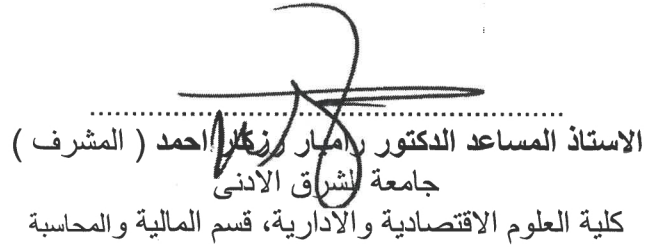 ................................................................
الاستاذ المساعد الدكتور راميار رزكار احمد ( المشرف )
جامعة الشرق الادنى
كلية العلوم الاقتصادية والادارية، قسم المالية والمحاسبة